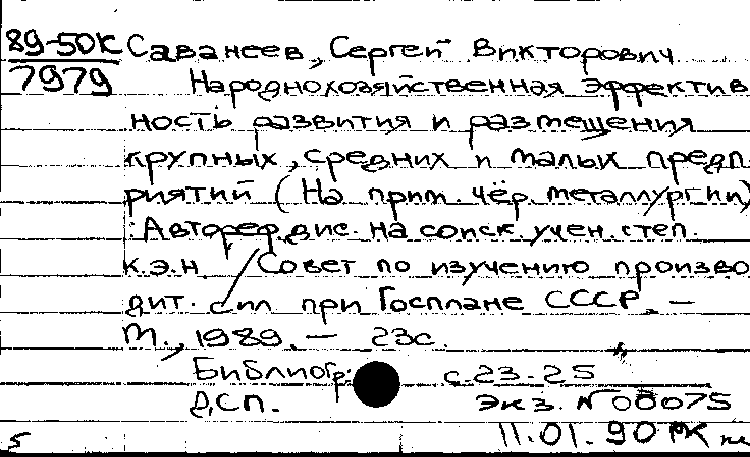 89-50К Саванеев, Сергей Викторович
7979
Народнохозяйственная эффектив
ность развития и размещения
крупных, средних и малых предп
риятий (На прим. чёр. металлургии)
: Автореф. дис. на соиск. учен. степ.
к.э.н / Совет по изучению произво
дит. сил при Госплане СССР. —
М., 1989. — 23с.
Библиогр: с.23-25
ДСП. Экз. №00075
11.01.90 РК
5